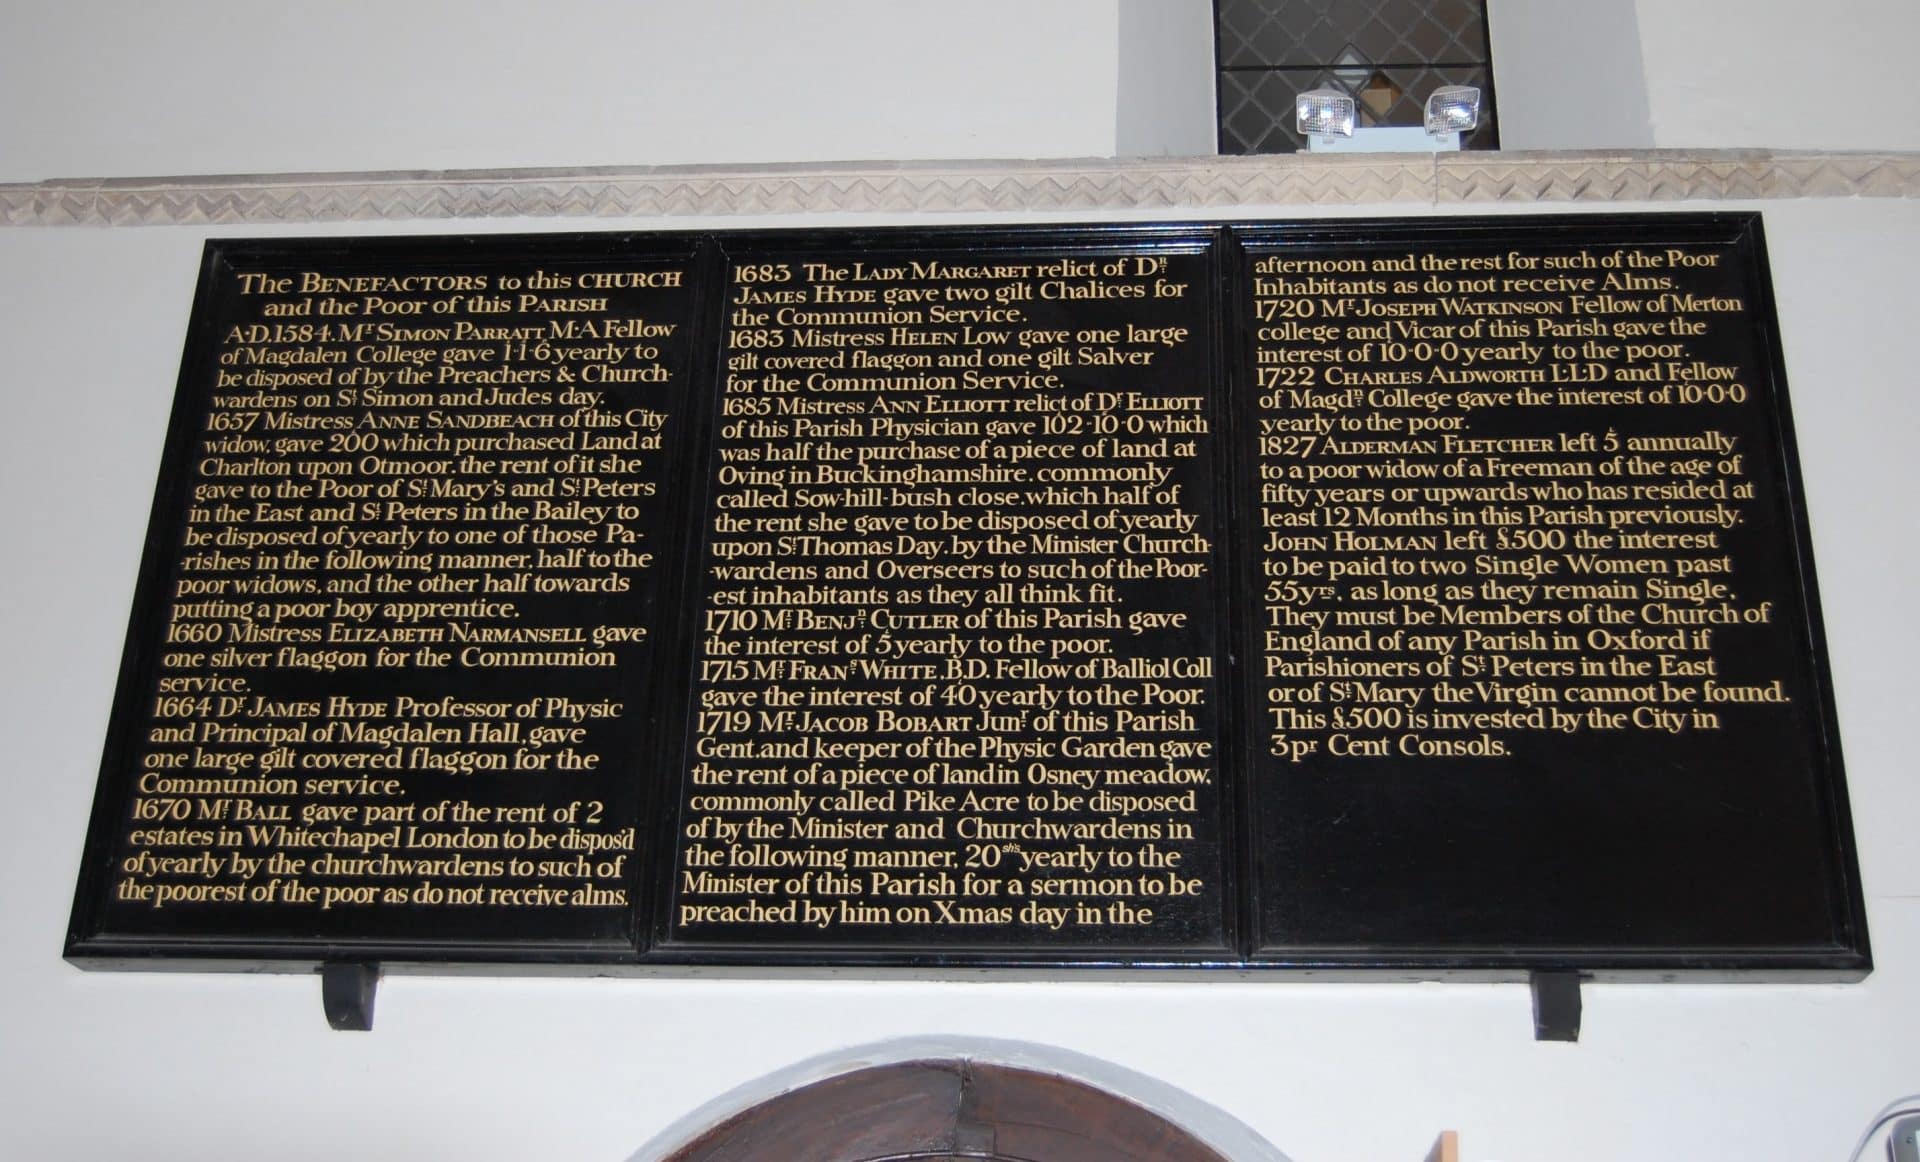 The BENEFACTORS to this CHURCH
and the Poor of this PARISH
A·D.1584. Mr SIMON PARRATT M·A Fellow
of Magdalen College gave 1·1·6 yearly to
be disposed of by the Preachers & Church-
wardens on St Simon and Judes day.
1657 Mistress ANNE SANDBEACH of this City
widow, gave 200 which purchased Land at
Charlton upon Otmoor. the rent of it she
gave to the Poor of St Mary's and St Peters
in the East and St Peters in the Bailey to
be disposed of yearly to one of those Pa-
-rishes in the following manner, half to the
poor widows, and the other half towards
putting a poor boy apprentice.
1660 Mistress ELIZABETH NARMANSELL gave
one silver flaggon for the Communion
service.
1664 Dr JAMES HYDE Professor of Physic
and Principal of Magdalen Hall, gave
one large gilt covered flaggon for the
Communion service.
1670 Mr BALL gave part of the rent of 2
estates in Whitechapel London to be dispos'd
of yearly by the churchwardens to such of
the poorest of the poor as do not receive alms.
1683 The LADY MARGARET relict of DR
JAMES HYDE gave two gilt Chalices for
the Communion Service.
1683 Mistress HELEN LOW gave one large
gilt covered flaggon and one gilt Salver
for the Communion Service.
1685 Mistress ANN ELLIOTT relict of Dr ELLIOTT
of this Parish Physician gave 102·10·0 which
was half the purchase of a piece of land at
Oving in Buckinghamshire, commonly
called Sow-hill-bush close, which half of
the rent she gave to be disposed of yearly
upon St Thomas Day, by the Minister Church-
-wardens and Overseers to such of the Poor-
-est inhabitants as they all think fit.
1710 Mr BENJn CUTLER of this Parish gave
the interest of £5 yearly to the poor.
1715 Mr FRANs WHITE, B.D. Fellow of Balliol Coll
gave the interest of £40 yearly to the Poor.
1719 Mr JACOB BOBART JUNr of this Parish
Gent. and keeper of the Physic Garden gave
the rent of a piece of land in Osney meadow,
commonly called Pike Acre to be disposed
of by the Minister and Churchwardens in
the following manner, 20shs yearly to the
Minister of this Parish for a sermon to be
preached by him on Xmas day in the
afternoon and the rest for such of the Poor
Inhabitants as do not receive Alms.
1720 Mr JOSEPH WATKINSON Fellow of Merton
college and Vicar of this Parish gave the
interest of 10·0·0 yearly to the poor.
1722 CHARLES ALDWORTH L·L·D and Fellow
of Magdn College gave the interest of 10·0·0
yearly to the poor.
1827 ALDERMAN FLETCHER left £5 annually
to a poor widow of a Freeman of the age of
fifty years or upwards who has resided at
least 12 Months in this Parish previously.
JOHN HOLMAN left £500 the interest
to be paid to two Single Women past
55yrs, as long as they remain Single.
They must be Members of the Church of
England of any Parish in Oxford if
Parishioners of St Peters in the East
or of St Mary the Virgin cannot be found.
This £500 is invested by the City in
3pr Cent Consols.